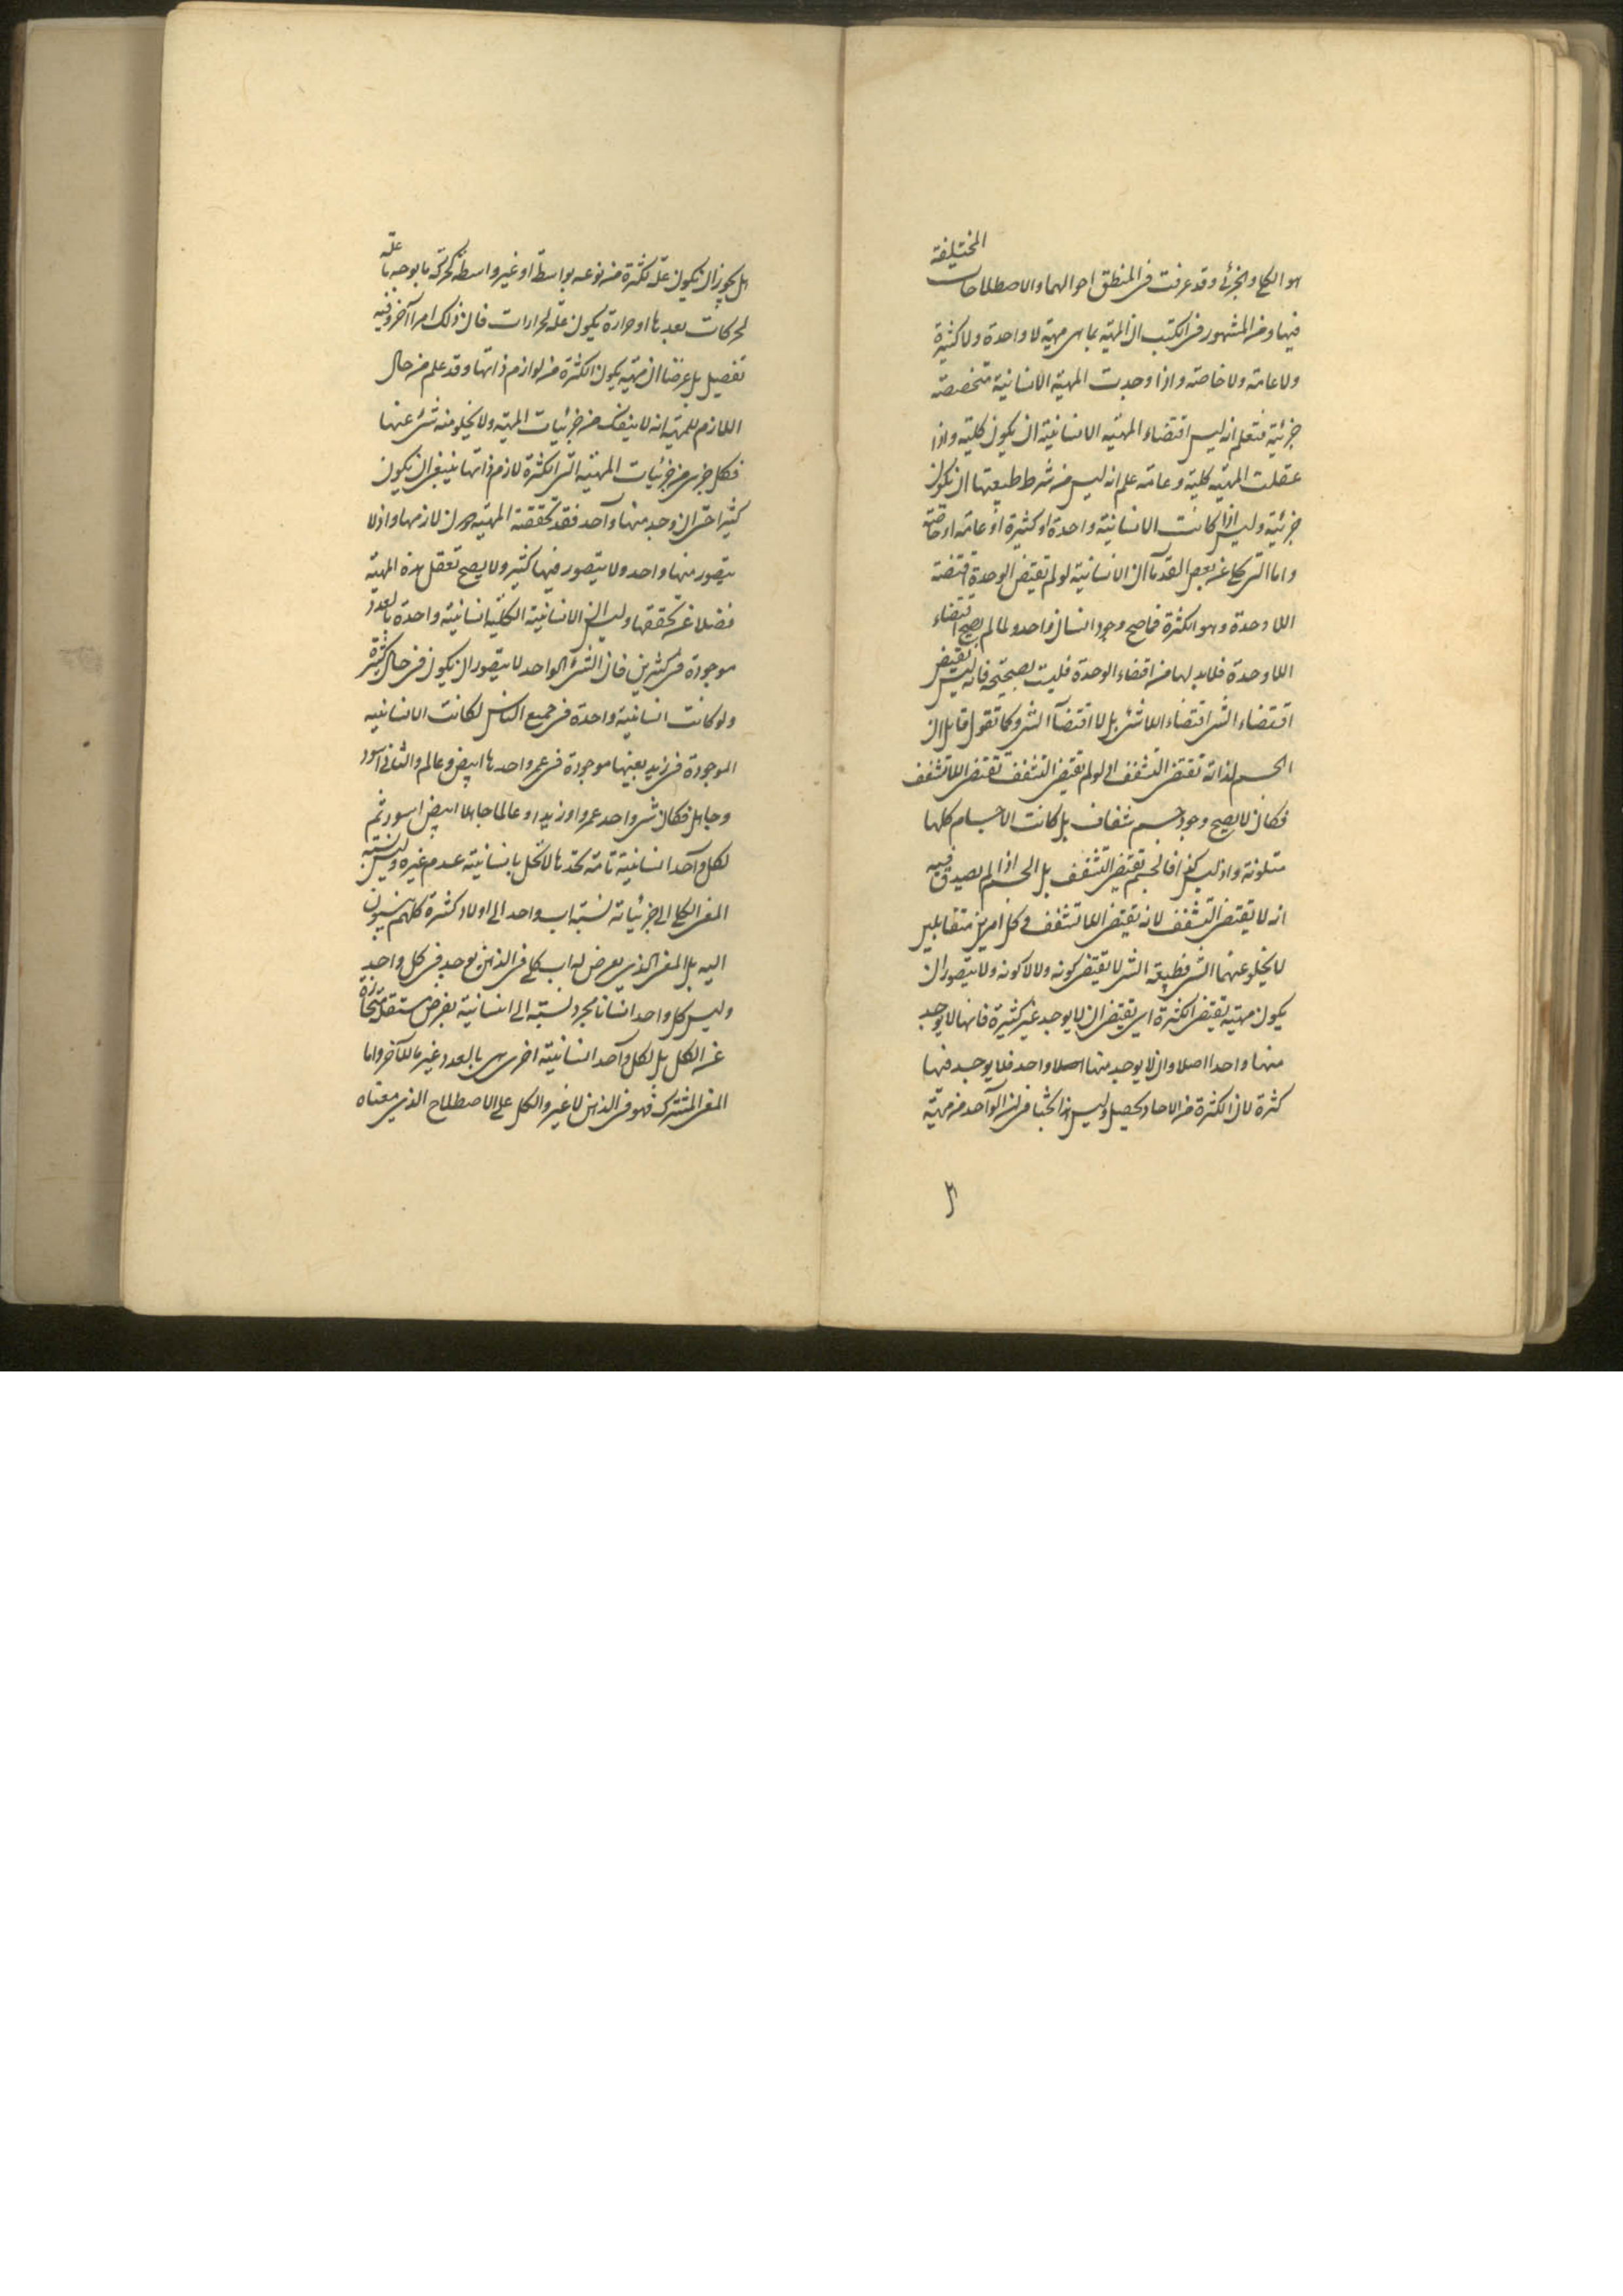 هو الكلي والجزئي وقد عرفت في المنطق احوالهما والاصطلاحات المختلفة
فيها ومن المشهور في الكتب ان المهية بما هي مهية لا واحدة ولا كثيرة
ولا عامة ولا خاصة واذا وجدت المهية الانسانية متخصصة
جزئية فتعلم انه ليس اقتضاء المهية الانسانية ان يكون كلية واذا
عقلت المهية كلية وعامة علم انه ليس من شرط طبيعتها ان يكون
جزئية وليس اذا كانت الانسانية واحدة او كثيرة او عامة او خاصة
واما التي حكى عن بعض القدماء ان الانسانية لو لم تقتض الوحدة اقتضت
اللاوحدة وهو الكثرة فما صح وجود انسان واحد ولما لم يصح اقتضاء
اللاوحدة فلا بد لها من اقتضاء الوحدة فليست بصحيحة فانه ليس نقيض
اقتضاء الشئ اقتضاء اللاشئ بل لا اقتضاء الشئ وكما تقول قايل ان
الجسم لذاته تقتضي التشفف اذ لو لم تقتض التشفف تقتضي اللاتشفف
فكان لا يصح وجود جسم شفاف بل كانت الاجسام كلها
متلونة واذ ليس كذا فالجسم تقتضي التشفف بل الجسم اذا لم يصدق فيه
انه لا تقتضي التشفف لانه يقتضي اللاتشفف وكل امرين متقابلين
لا يخلو عنهما الشئ فطبيعة الشئ لا يقتضي كونه ولا لا كونه ولا يتصور ان
يكون مهية تقتضي الكثرة اي يقتضي ان لا يوجد غير كثيرة فانها لا يوجد
منها واحد اصلا وان لا يوجد منها اصلا واحد فلا يوجد فيها
كثرة لان الكثرة من الاحاد تحصل وليس هذا بحثا في ان الواحد من مهية
هل يجوز ان يكون علة لكثرة من نوعه بواسطة او غير واسطة كحركة ما يوجد ما علة
لحركات بعدها او حرارة يكون علة لحرارات فان ذلك امر آخر وفيه
تفصيل بل غرضنا ان مهية يكون الكثرة من لوازم ذاتها وقد علم من حال
اللازم للمهية انه لا ينفك من جزئيات المهية ولا يخلو منه شئ عنها
فكل جزئي من جزئيات المهية التي الكثرة لازم ذاتها ينبغي ان يكون
كثيرا حتى ان وجد منها واحد فقد تحققت المهية دون لازمها واذ لا
يتصور منها واحد ولا يتصور فيها كثير ولا يصح تعقل هذه المهية
فضلا عن تحققها وليس ان الانسانية الكلية انسانية واحدة بالعدد
موجودة في كثيرين فان الشئ الواحد لا يتصور ان يكون في محال كثيرة
ولو كانت انسانية واحدة في جميع الناس لكانت الانسانية
الموجودة في زيد بعينها موجودة في عمرو واحدها ابيض وعالم والثاني اسود
وجاهل فكان شئ واحد عمروا وزيدا وعالما جاهلا ابيض اسود ثم
لكل واحد انسانية تامة تحدها لا تخل بانسانيته عدم غيره وليس نسبة
المعنى الكلي الى جزئياته نسبة اب واحد الى اولاد كثيرة كلهم ينسبون
اليه بل المعنى الذي يعرض له اب كلي في الذهن يوجد في كل واحد
وليس كل واحد انسانا بمجرد نسبته الى انسانية يفرض مستقلة منحازة
عن الكل بل لكل واحد انسانية اخرى هي بالعدد غير ما للآخر واما
المعنى المشترك فهو في الذهن لا غير والكل على الاصطلاح الذي معناه